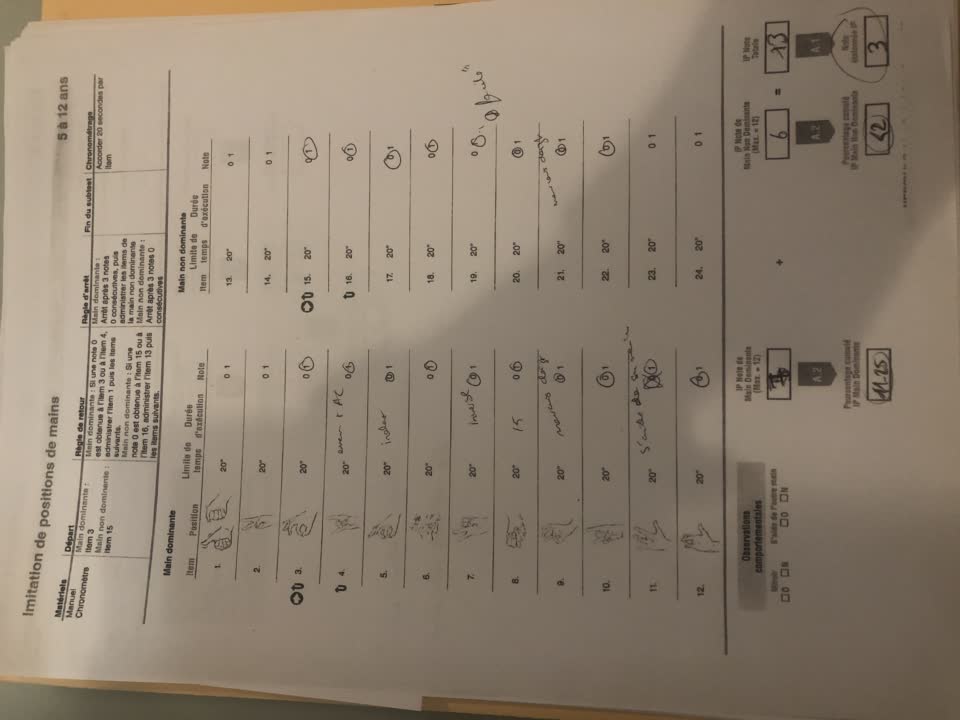 Imitation de positions de mains
5 à 12 ans
Matériels
Manuel
Chronomètre
Départ
Main dominante :
Item 3
Main non dominante :
Item 15
Règle de retour
Main dominante : Si une note 0
est obtenue à l'item 3 ou à l'item 4,
administrer l'item 1 puis les items
suivants.
Main non dominante : Si une
note 0 est obtenue à l'item 15 ou à
l'item 16, administrer l'item 13 puis
les items suivants.
Règle d'arrêt
Main dominante :
Arrêt après 3 notes
0 consécutives, puis
administrer les items de
la main non dominante
Main non dominante :
Arrêt après 3 notes 0
consécutives
Fin du subtest
Chronométrage
Accorder 20 secondes par
item
Main dominante
Item Position Limite de temps Durée d'exécution Note
1. 20" 0 1
2. 20" 0 1
3. 20" 0 1
4. 20" 0 1
5. 20" index 0 1
6. 20" 0 1
7. 20" 0 1
8. 20" 15 0 1
9. 20" 0 1
10. 20" 0 1
11. 20" 0 1
12. 20" 0 1
Main non dominante
Item Limite de temps Durée d'exécution Note
13. 20" 0 1
14. 20" 0 1
15. 20" 0 1
16. 20" 0 1
17. 20" 0 1
18. 20" 0 1
19. 20" 0
20. 20" 0 1
21. 20" 0 1
22. 20" 0 1
23. 20" 0 1
24. 20" 0 1
Observations
comportementales
Miroir
O N
S'aide de l'autre main
O N
IP Note de
Main Dominante
(Max. = 12)
A.2
Pourcentage cumulé
IP Main Dominante
11-25
+
IP Note de
Main Non Dominante
(Max. = 12)
6
A.2
Pourcentage cumulé
IP Main Non Dominante
=
IP Note
Totale
13
A.1
Note
étalonnée IP
3